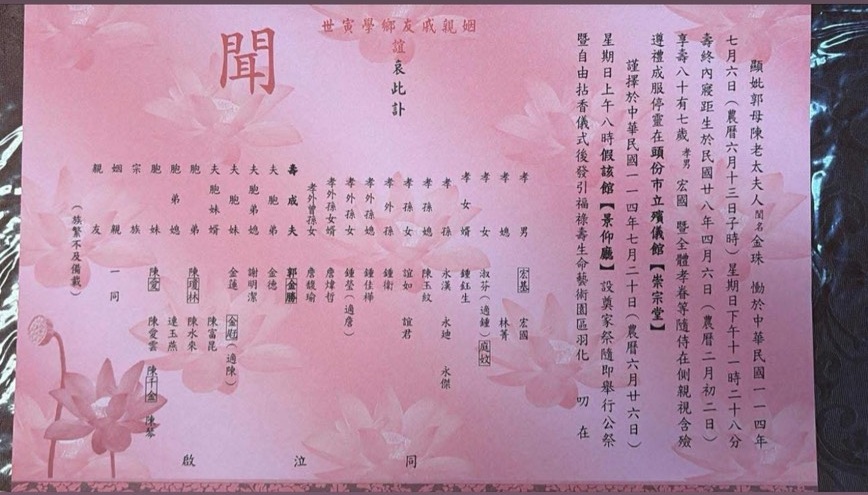 顯妣郭母陳老太夫人閨名金珠 慟於中華民國一一四年
七月六日(農曆六月十三日子時)星期日下午十一時二十八分
壽終內寢距生於民國廿八年四月六日(農曆二月初二日)
享壽八十有七歲 孝男 宏國 暨全體孝眷等隨侍在側親視含殮
遵禮成服停靈在頭份市立殯儀館【崇宗堂】
謹擇於中華民國一一四年七月二十日(農曆六月廿六日)
星期日上午八時假該館【景仰廳】設奠家祭隨即舉行公祭
暨自由拈香儀式後發引福祿壽生命藝術園區羽化 叨在
姻親戚友鄉學寅世
誼
哀此訃
聞
孝男 宏基 宏國
孝媳 林菁
孝女 淑芬(適鍾)庭妏
孝女婿 鍾鈺生
孝孫 永漢 永地 永傑
孝孫媳 陳玉紋
孝孫女 誼如 誼君
孝外孫 鍾衛
孝外孫媳 鍾佳樺
孝外孫女 鍾瑩(適詹)
孝外孫女婿 詹煒哲
孝外曾孫女 詹馥瑜
壽成夫 郭金勝
夫胞弟 金德
夫胞弟媳 謝明潔
夫胞妹 金蓮 金尉(適陳)
夫胞妹婿 陳富昆
胞弟 陳瓊林 陳水來
胞弟媳 連玉燕
胞妹 陳愛 陳愛雲 陳千金 陳琴
宗族
姻親 一同
親友
(族繁不及備載)
同泣啟